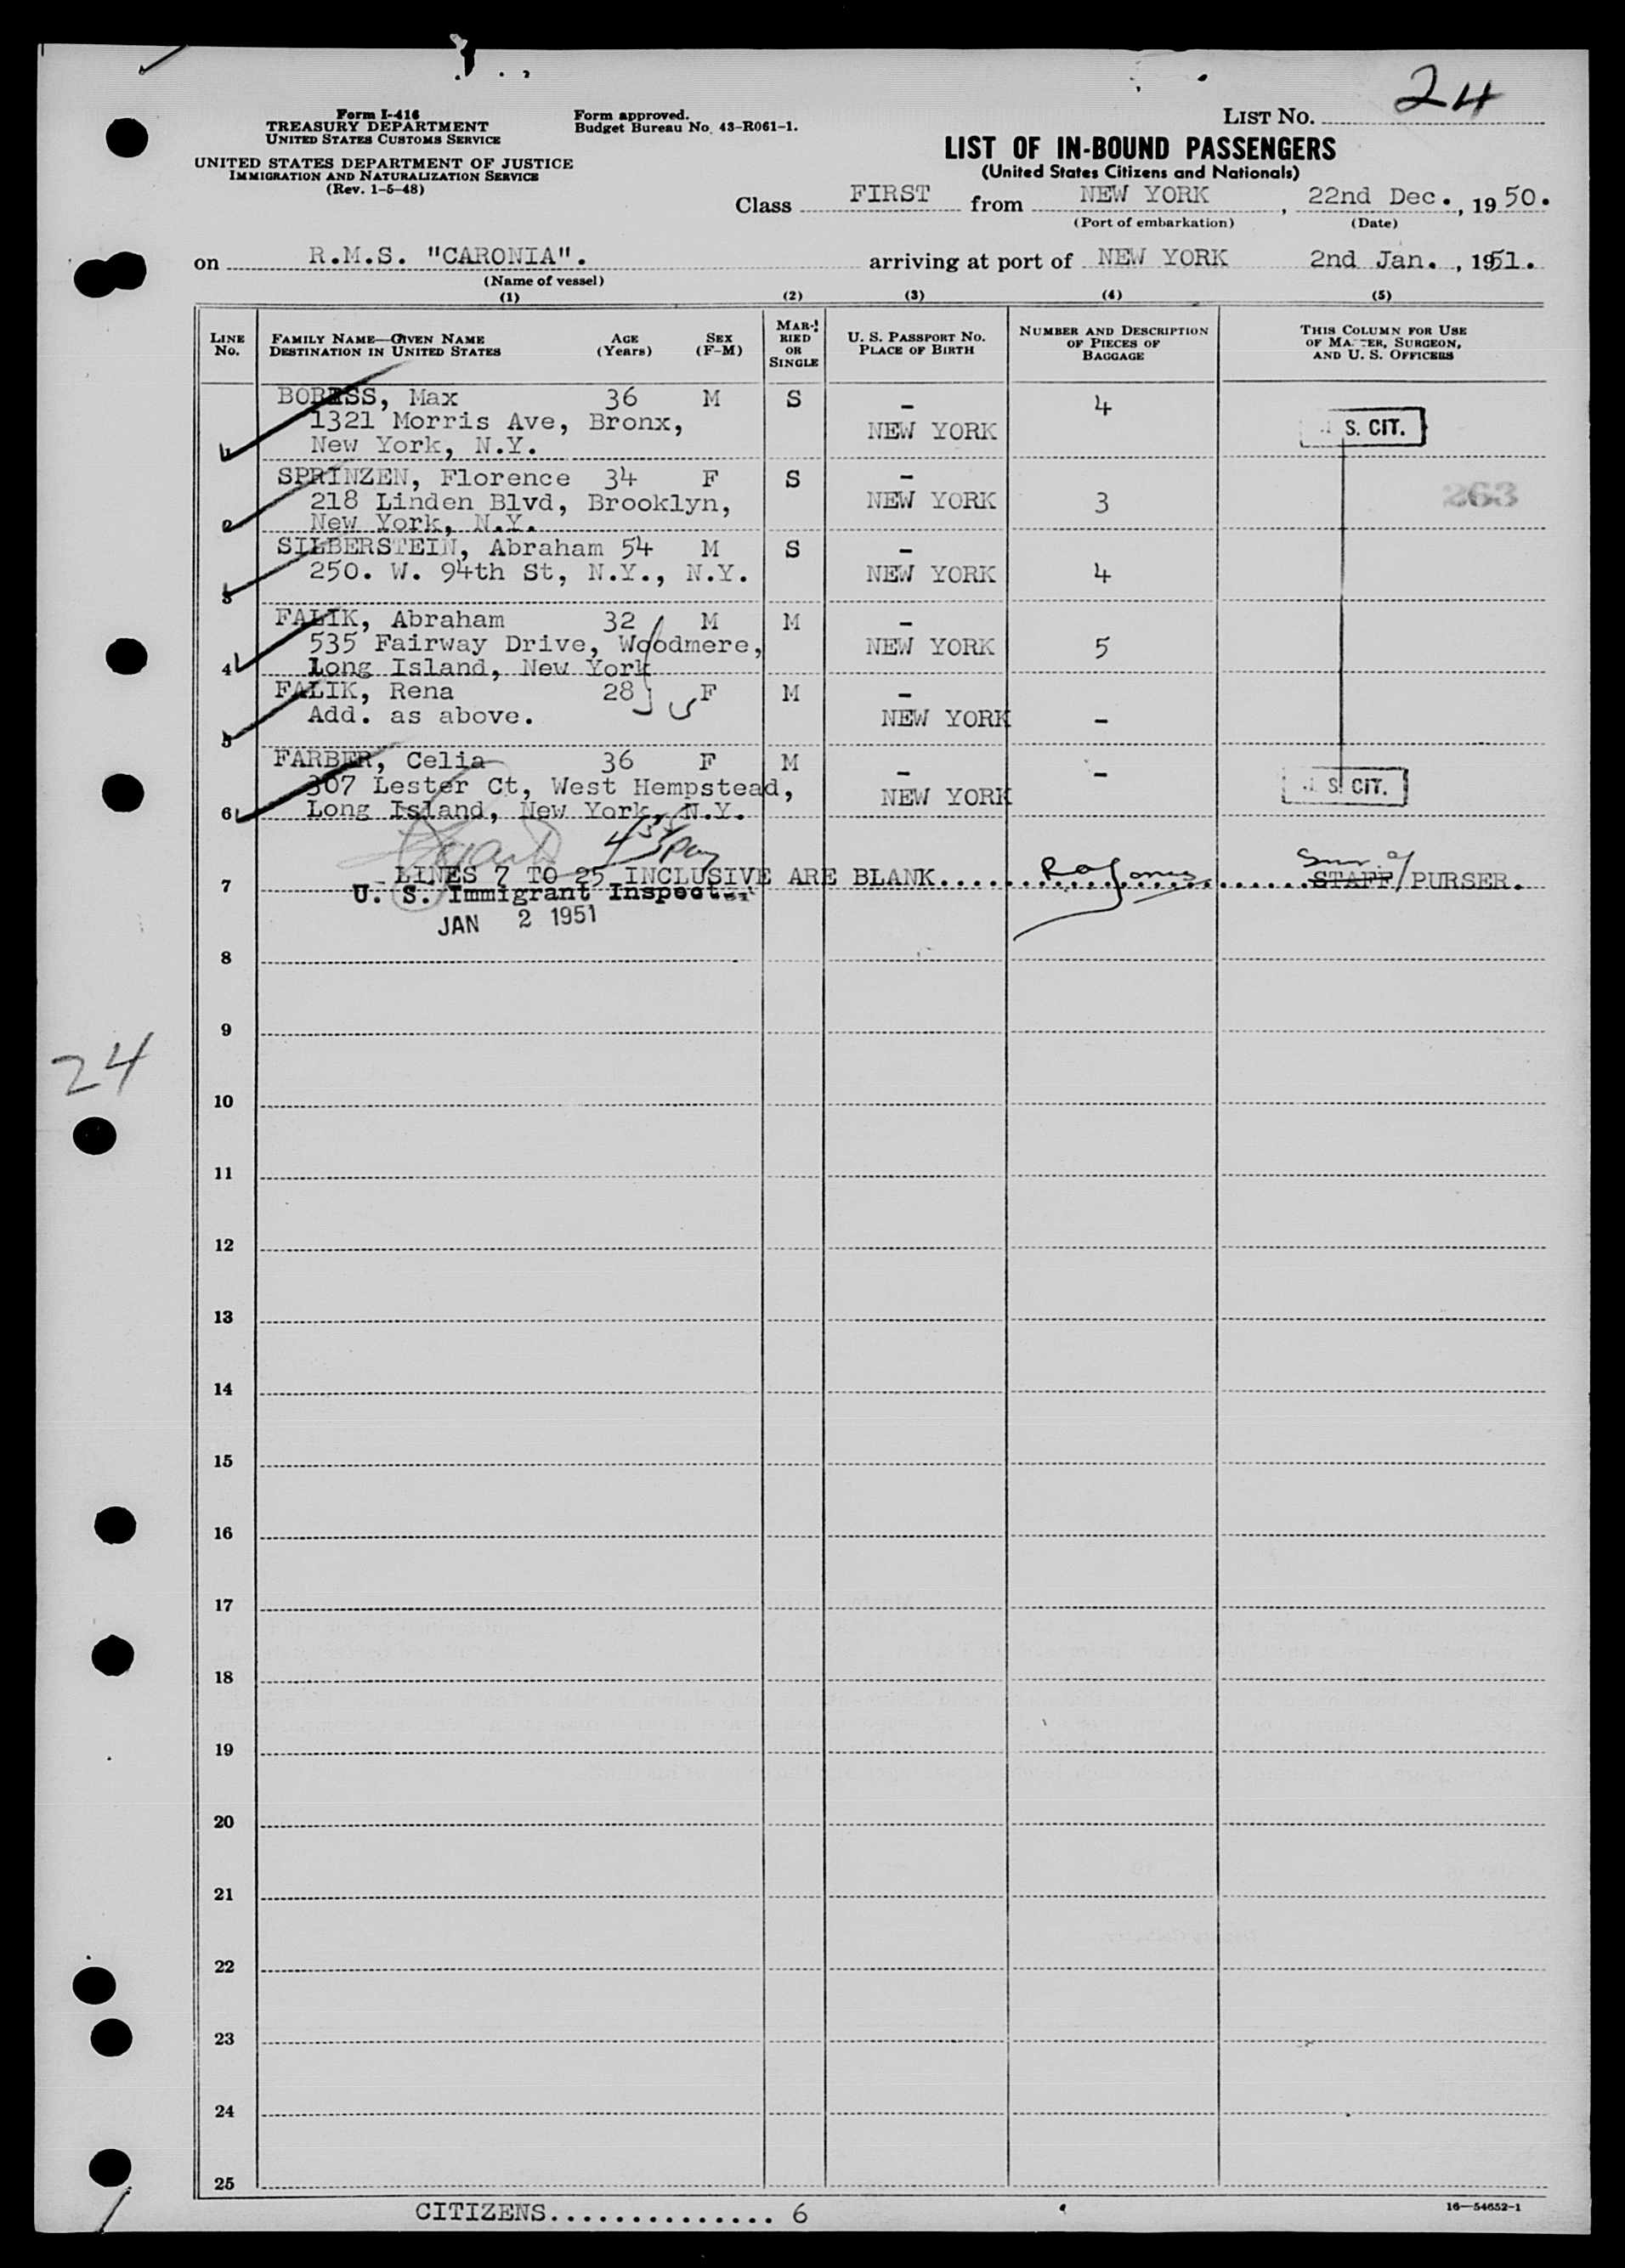 24
Form I-416
TREASURY DEPARTMENT
UNITED STATES CUSTOMS SERVICE
UNITED STATES DEPARTMENT OF JUSTICE
IMMIGRATION AND NATURALIZATION SERVICE
(Rev. 1-5-48)
Form approved.
Budget Bureau No. 43-R061-1.
LIST NO.
LIST OF IN-BOUND PASSENGERS
(United States Citizens and Nationals)
Class FIRST from NEW YORK, 22nd Dec., 1950.
(Port of embarkation) (Date)
on R.M.S. "CARONIA". arriving at port of NEW YORK 2nd Jan., 1951.
(Name of vessel)
(1) (2) (3) (4) (5)
LINE No.
FAMILY NAME—GIVEN NAME
DESTINATION IN UNITED STATES
AGE (Years)
SEX (F-M)
MARRIED OR SINGLE
U. S. PASSPORT NO.
PLACE OF BIRTH
NUMBER AND DESCRIPTION
OF PIECES OF
BAGGAGE
THIS COLUMN FOR USE
OF MASTER, SURGEON,
AND U. S. OFFICERS
Max 36 M S - 4
1321 Morris Ave, Bronx, NEW YORK S. CIT.
1 New York, N.Y.
SPRINZEN, Florence 34 F S - 263
218 Linden Blvd, Brooklyn, NEW YORK 3
2 New York, N.Y.
SILBERSTEIN, Abraham 54 M S -
250. W. 94th St, N.Y., N.Y. NEW YORK 4
3
FALIK, Abraham 32 M M -
535 Fairway Drive, Woodmere, NEW YORK 5
4 Long Island, New York
FALIK, Rena 28 F M -
Add. as above. NEW YORK -
5
FARBER, Celia 36 F M - -
307 Lester Ct, West Hempstead, NEW YORK S. CIT.
6 Long Island, New York, N.Y.
7 LINES 7 TO 25 INCLUSIVE ARE BLANK.... STAFF/PURSER.
U. S. Immigrant Inspector
JAN 2 1951
8
9
24
10
11
12
13
14
15
16
17
18
19
20
21
22
23
24
25
CITIZENS.............. 6
16—54652-1